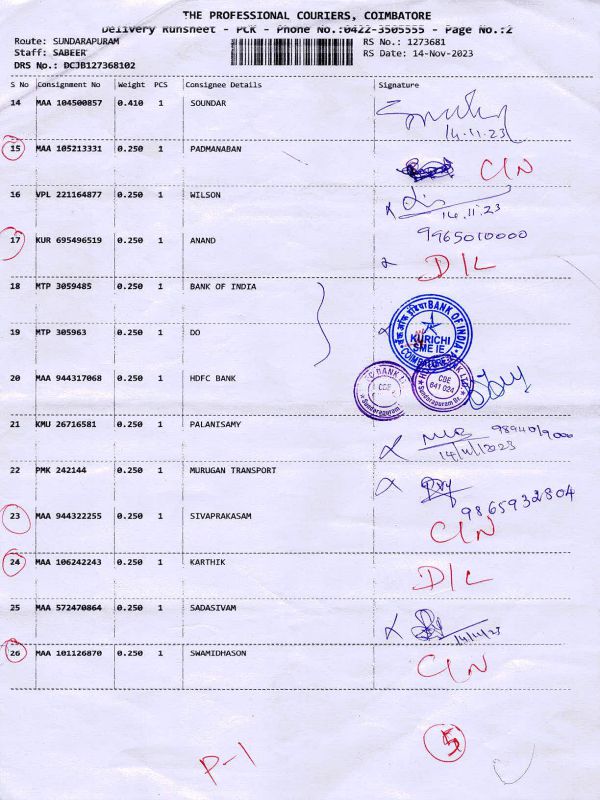 THE PROFESSIONAL COURIERS, COIMBATORE
Delivery Runsheet - PCR - Phone No.:0422-3505555 - Page No.:2
Route: SUNDARAPURAM RS No.: 1273681
Staff: SABEER RS Date: 14-Nov-2023
DRS No.: DCJB127368102
S No Consignment No Weight PCS Consignee Details Signature
14 MAA 104500857 0.410 1 SOUNDAR
14.11.23
15 MAA 105213331 0.250 1 PADMANABAN C/N
16 VPL 221164877 0.250 1 WILSON
14.11.23
17 KUR 695496519 0.250 1 ANAND 9965010000
D/L
18 MTP 3059485 0.250 1 BANK OF INDIA
19 MTP 305963 0.250 1 DO
BANK OF INDIA
KURICHI
SME IE
COIMBATORE
20 MAA 944317068 0.250 1 HDFC BANK
CBE
641 024
Sundarapuram Br.
CBE
Sundarapuram
21 KMU 26716581 0.250 1 PALANISAMY
14/11/2023
22 PMK 242144 0.250 1 MURUGAN TRANSPORT
9865932804
23 MAA 944322255 0.250 1 SIVAPRAKASAM C/N
24 MAA 106242243 0.250 1 KARTHIK D/L
25 MAA 572470864 0.250 1 SADASIVAM
14/11/23
26 MAA 101126870 0.250 1 SWAMIDHASON C/N
5
P-1